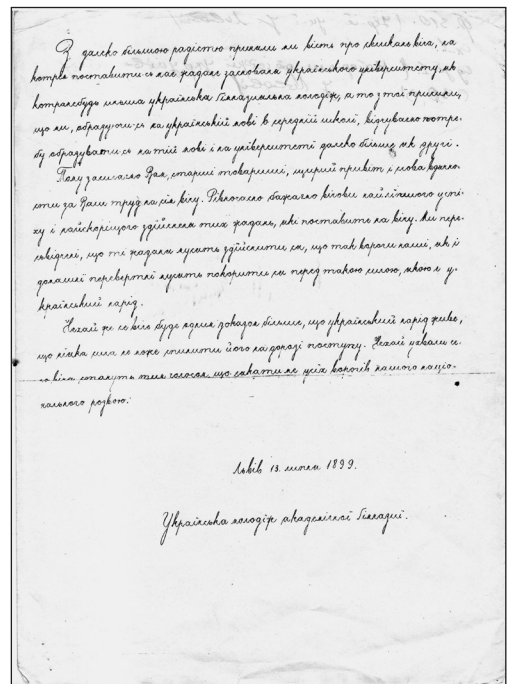 З далеко більшою радістю приняли ми вість про скликанє віча, на
котрім поставити ся має жаданє заснованя українського університету, як
котранебудь иньша українська гімназияльна молодїж, а то з тої причини,
що ми, образуючи ся на українській мові в середній школї, відчуваємо потре-
бу образувати ся на тій мові і на університеті далеко більше як другі.
Тому засилаємо Вам, старші товариші, щирий привит і слова вдячно-
сти за Ваш труд на сім вічу. Рівночасно бажаємо вічови найліпшого успі-
ху і найскорішого здійсненя тих жадань, які поставить на вічу. Ми пере-
свідчені, що ті жаданя мусять здійснити ся, що так вороги наші, як і
домашні перевертні мусять покорити ся перед такою силою, якою є у-
країнський нарід.
Нехай же се віче буде одним доказом більше, що український нарід живе,
що ніяка сила не може спинити його на дорозі поступу. Нехай ухвали се-
го віча стануть тим голосом, що усіх ворогів нашого націо-
нального розвою.
Львів 13. липня 1899.
Українська молодїж академічної гімназиї.